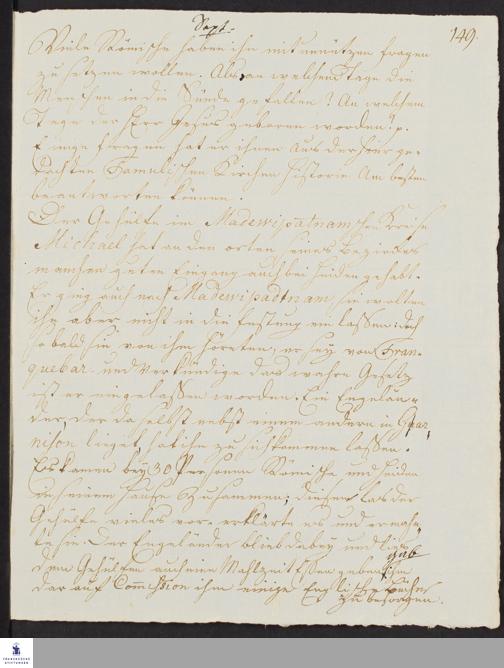 Sept.
149.
Viele Römische haben ihn mit unnützen fragen
zu setzen wollen. Als, an welchem Tage die
Menschen in die Sünde gefallen? An welchem
Tage der Herr Jesus geboren worden? p.
Einige fragen hat er ihnen aus der hier ge-
dachten Tamulischen Kirchen Historie am besten
beantworten können.
Der Gehülfe im Madewipatnamschen Kreise
Michael hat an den orten seines Bezirckes
manchen guten Eingang auch bei Heiden gehabt.
Er ging auch nach Madewipadtnam sie wolten
ihn aber nicht in die Festung ein lassen: doch
so bald sie von ihm höreten, er sey von Tran-
quebar und verkündige das wahre Gesetz
ist er eingelassen worden. Ein Engelän-
der, der daselbst nebst einem andern in Guar-
nison lieget hat ihn zu sich kommen lassen.
Es kamen bey 30 Personen Römische und Heiden
in seinem Hause zusammen; diesen las der
Gehülfe vieles vor, erklärte es und ermahn-
te sie. Der Engeländer blieb dabey und lies
dem Gehülfen auch eine Mahlzeit Essen geben
gab ihm
darauf Commission ihm einige Englische Bücher
zu besorgen.
FRANCKESCHE
STIFTUNGEN